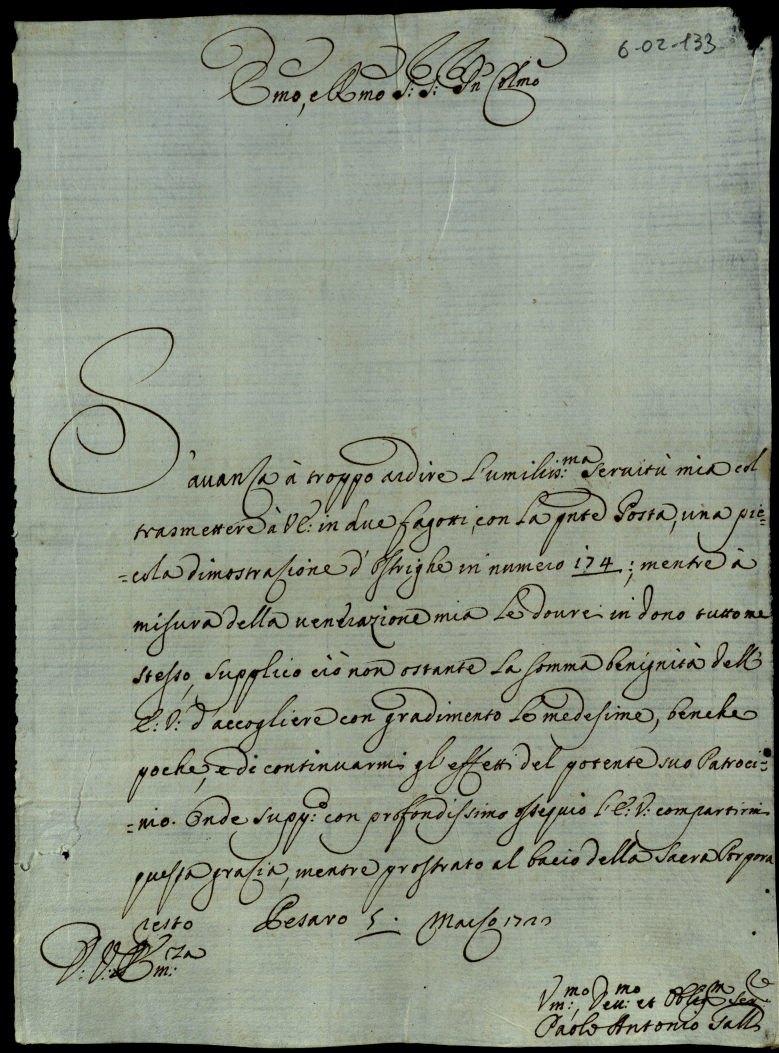 6-02-133
Emo, e Rmo S:r S:r Pn Colmo
S'auanza à troppo ardire l'umiliss:ma Seruitù mia col
trasmettere à V.E: in due fagotti, con la pnte Posta, una pic=
=cola dimostrazione d'Ostrighe in numero 174; mentre à
misura della uenerazione mia le dourei in dono tutto me
stesso, Supplico ciò non ostante la somma benignità dell'
E: V: d'accogliere con gradimento le medesime, benche
poche, e di continuarmi gl'effetti del potente suo Patroci=
=nio. Onde supp:co con profondissimo ossequio l'E: V: compartirmi
questa grazia, mentre prostrato al bacio della Sacra Porpora
resto Pesaro 5: Marzo
D: V: Em:za
Vm:mo, Deu:mo et Oblig:m Ser:e
Paolo Antonio